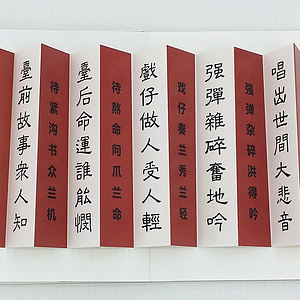 唱出世間大悲音
强弹杂碎洪得吟
强彈雜碎奮地吟
戏仔秦兰秀兰轻
戲仔做人受人輕
待熬命问爪兰命
臺后命運誰能憫
待紧沟书众兰机
臺前故事衆人知